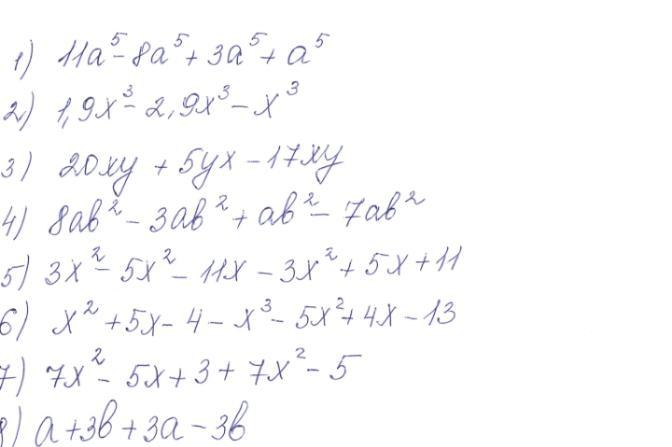 1) 11a⁵ - 8a⁵ + 3a⁵ + a⁵
2) 1,9x³ - 2,9x³ - x³
3) 20xy + 5yx - 17xy
4) 8ab² - 3ab² + ab² - 7ab²
5) 3x² - 5x² - 11x - 3x² + 5x + 11
6) x² + 5x - 4 - x³ - 5x² + 4x - 13
7) 7x² - 5x + 3 + 7x² - 5
8) a + 3b + 3a - 3b